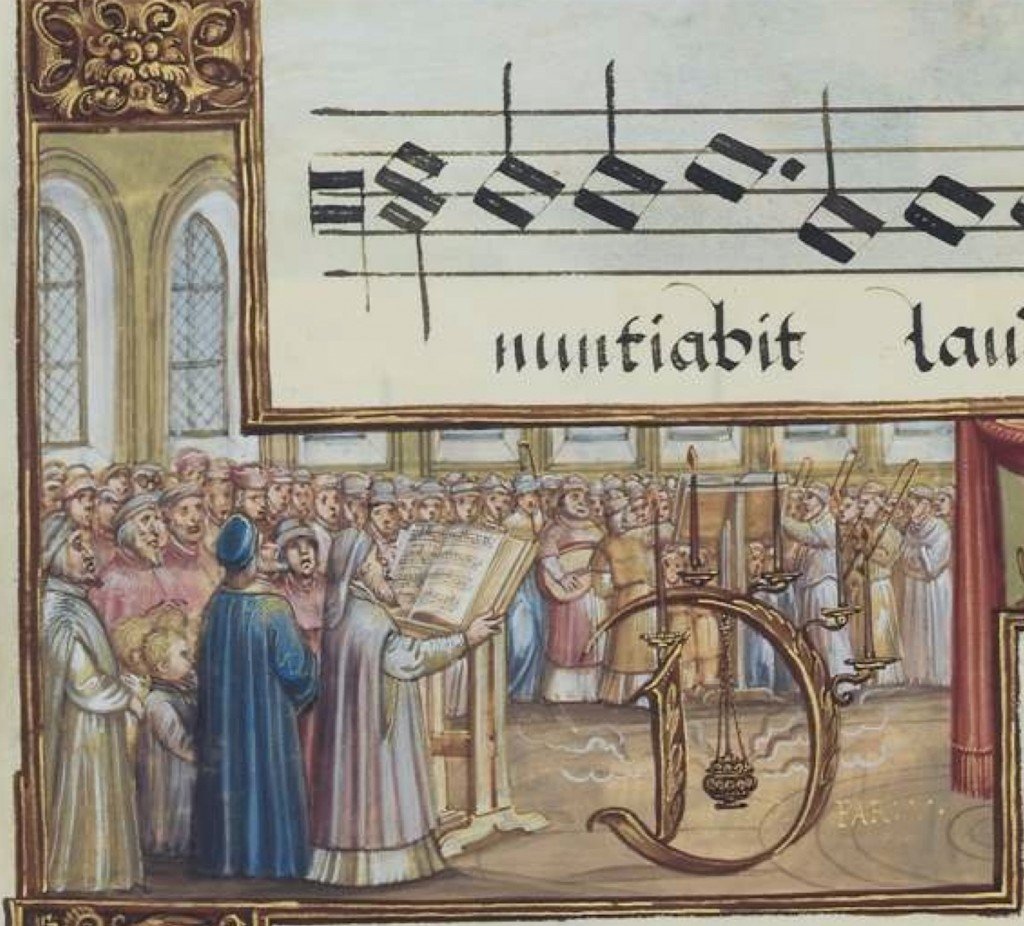 nuntiabit lau
D
PAR